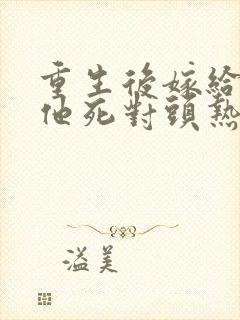 重生後嫁給
他死對頭熱
溢美